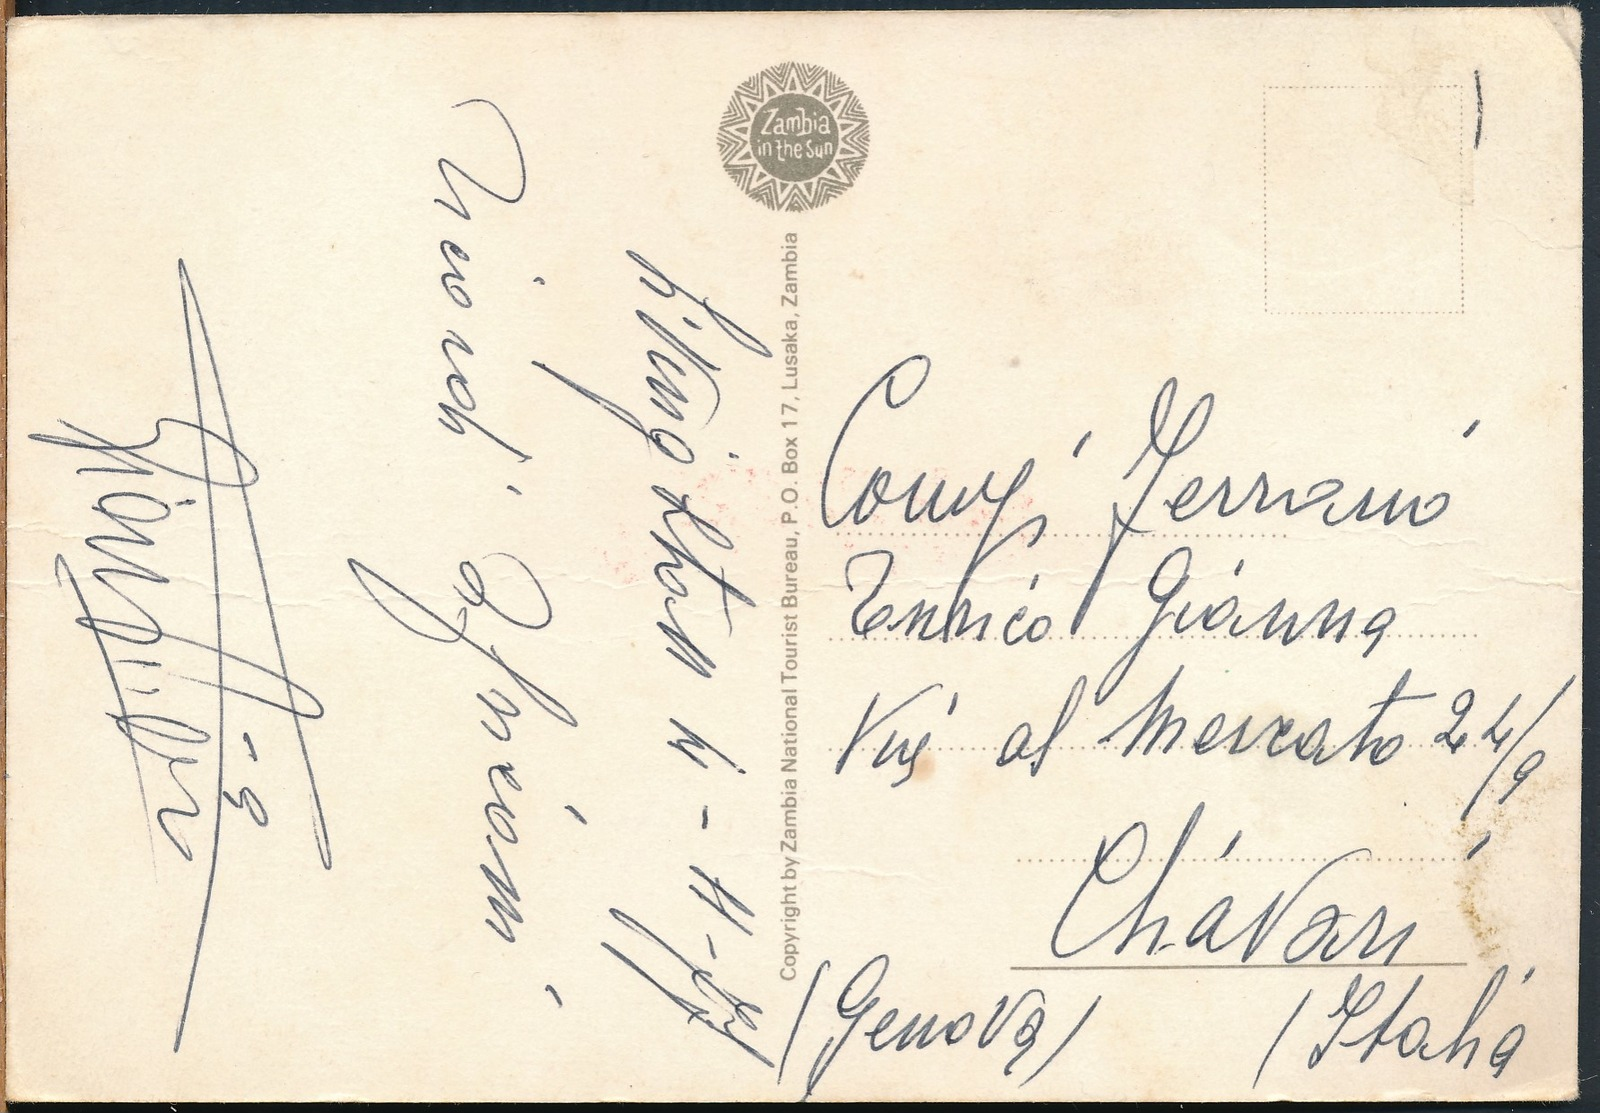 Zambia
in the Sun
Copyright by Zambia National Tourist Bureau, P.O. Box 17, Lusaka, Zambia
Livingstone
Ricordi Africani
Gian
e
Coniugi Ferrario
Enrico Gianna
Via al Mercato 24/9
Chiavari
(Genova)
(Italia